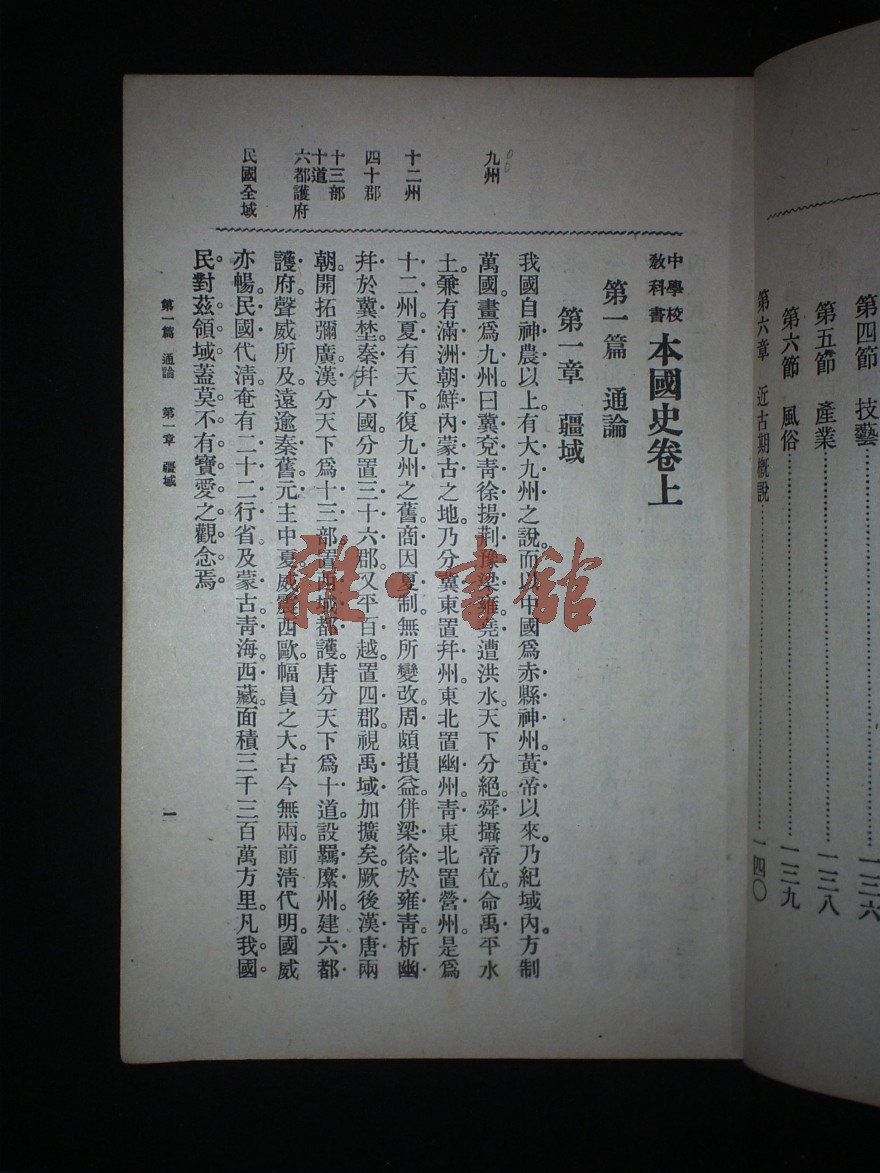 第四節　技藝……一三六
第五節　產業……一三八
第六節　風俗……一三九
第六章　近古期槪說……一四〇
中學校
敎科書
本國史卷上
第一篇　通論
第一章　疆域
九州
十二州
四十郡
十三部
十道
六都護府
民國全域
我國自神農以上。有大九州之說。而以中國爲赤縣神州。黃帝以來。乃紀域內。方制
萬國。畫爲九州。曰冀兗靑徐揚荆豫梁雍。堯遭洪水。天下分絕。舜攝帝位。命禹平水
土。兼有滿洲朝鮮內蒙古之地。乃分冀東置幷州。東北置幽州。靑東北置營州。是爲
十二州。夏有天下。復九州之舊。商因夏制。無所變改。周頗損益。併梁徐於雍靑。析幽
幷於冀。埜秦幷六國。分置三十六郡。又平百越。置四郡。視禹域加擴矣。厥後漢唐兩
朝。開拓彌廣。漢分天下爲十三部。置西域都護。唐分天下爲十道。設羈縻州。建六都
護府。聲威所及。遠逾秦舊。元主中夏。威震西歐。幅員之大。古今無兩。前淸代明。國威
亦暢。民國代淸。奄有二十二行省及蒙古靑海西藏。面積三千三百萬方里。凡我國
民。對茲領域。蓋莫不有寶愛之觀念焉。
第一篇　通論　第一章　疆域
一
雜·書館